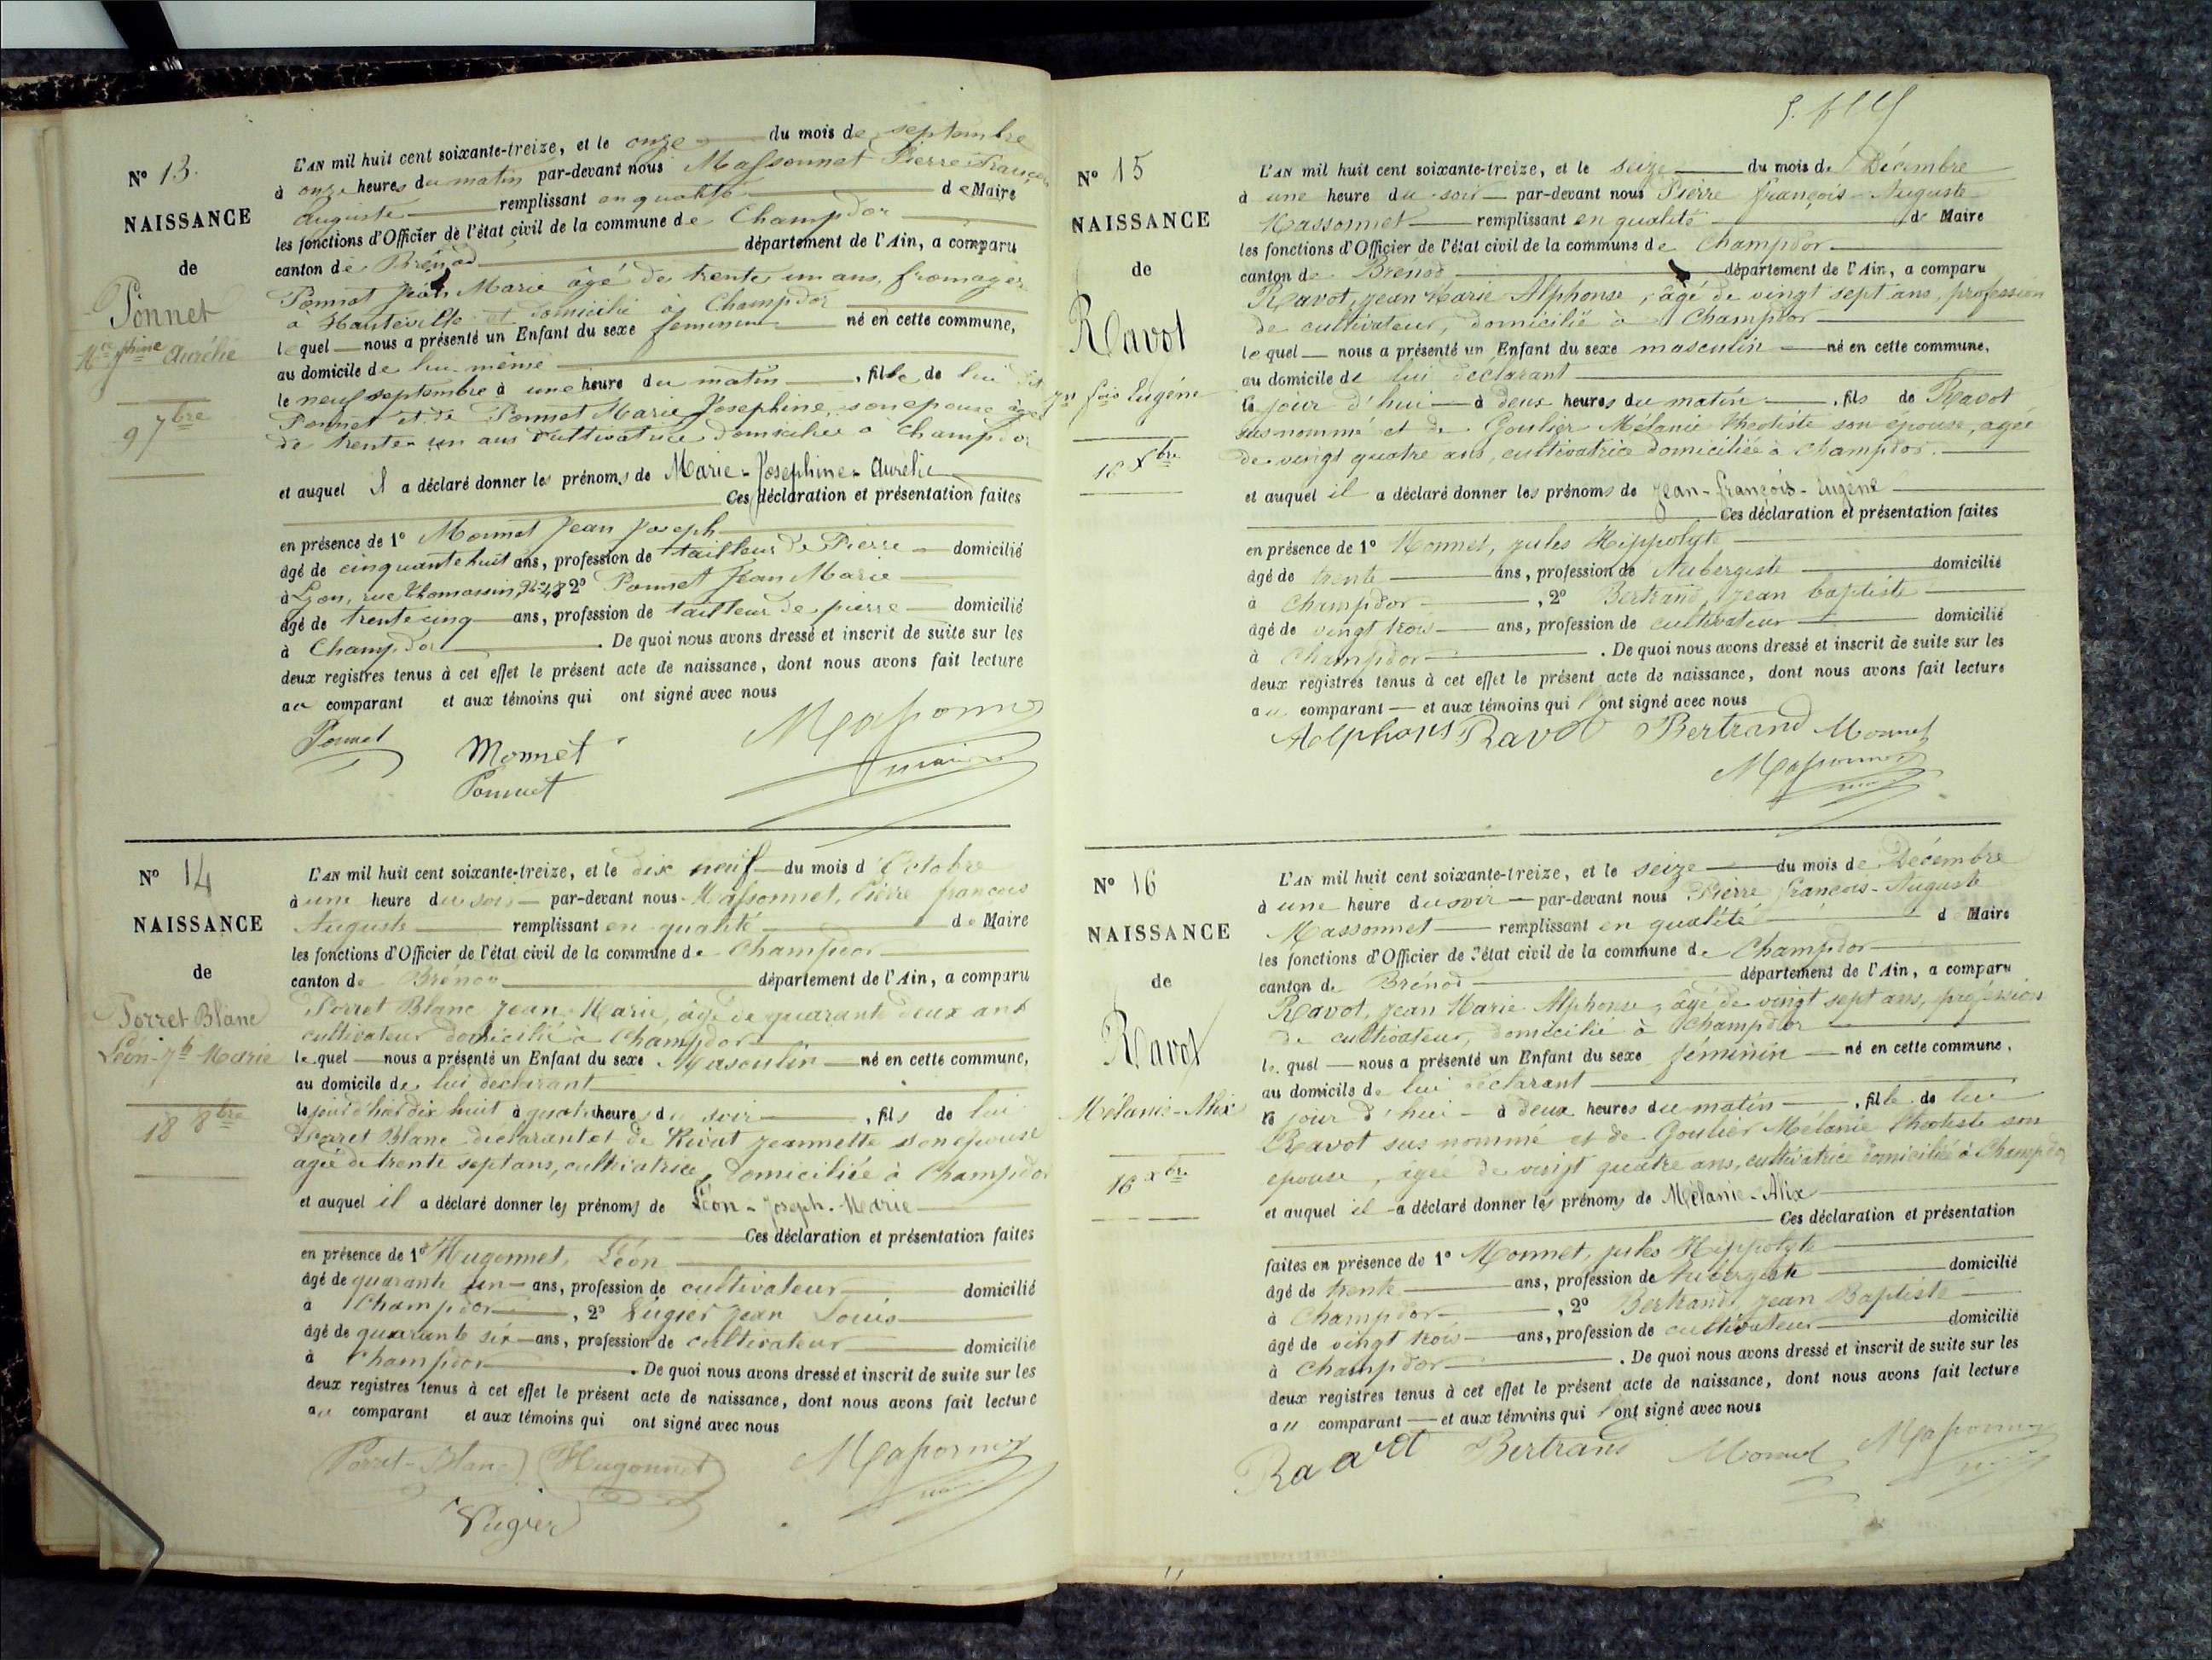 N° 13.
NAISSANCE
de
Ponnet
Mie Jphine Aurélie
9 7bre
L'AN mil huit cent soixante-treize, et le onze du mois de septembre
à onze heures du matin par-devant nous Massonnet Pierre François
Auguste remplissant en qualité de Maire
les fonctions d'Officier de l'état civil de la commune de Champdor
canton de Brénod département de l'Ain, a comparu
Ponnet Jean Marie âgé de trente un ans, fromager
à Hauteville et domicilié à Champdor
lequel nous a présenté un Enfant du sexe feminin né en cette commune,
au domicile de lui-même
le neuf septembre à une heure du matin, fille de lui dit
Ponnet et de Ponnet Marie Josephine, son epouse âgée
de trente-un ans cultivatrice domiciliée à Champdor
et auquel il a déclaré donner les prénoms de Marie-Josephine-Aurélie
Ces déclaration et présentation faites
en présence de 1° Monnet Jean Joseph
âgé de cinquante huit ans, profession de tailleur de Pierre domicilié
à Lyon, rue Thomassin, N° 48 2° Ponnet Jean Marie
âgé de trente cinq ans, profession de tailleur de pierre domicilié
à Champdor. De quoi nous avons dressé et inscrit de suite sur les
deux registres tenus à cet effet le présent acte de naissance, dont nous avons fait lecture
au comparant et aux témoins qui ont signé avec nous
Ponnet Monnet Massonnet
Ponnet maire
N° 14
NAISSANCE
de
Porret Blanc
Léon-Jh Marie
18 8bre
L'AN mil huit cent soixante-treize, et le dix neuf du mois d'Octobre
à une heure du soir par-devant nous Massonnet, Pierre françois
Auguste remplissant en qualité de Maire
les fonctions d'Officier de l'état civil de la commune de Champdor
canton de Brénod département de l'Ain, a comparu
Porret Blanc Jean Marie, âgé de quarante deux ans
cultivateur domicilié à Champdor
lequel nous a présenté un Enfant du sexe Masculin né en cette commune,
au domicile de lui déclarant
le jour d'hier dix huit à quatre heures du soir, fils de lui
Porret Blanc déclarant et de Rivat Jeannette son epouse
agée de trente sept ans, cultivatrice, domiciliée à Champdor
et auquel il a déclaré donner les prénoms de Léon-Joseph-Marie
Ces déclaration et présentation faites
en présence de 1° Hugonnet, Léon
âgé de quarante un ans, profession de cultivateur domicilié
à Champdor, 2° Jean Louis
âgé de quarante six ans, profession de cultivateur domicilié
à Champdor. De quoi nous avons dressé et inscrit de suite sur les
deux registres tenus à cet effet le présent acte de naissance, dont nous avons fait lecture
au comparant et aux témoins qui ont signé avec nous
Porret-Blanc Hugonnet Massonnet
N° 15
NAISSANCE
de
Ravot
Jn fois Eugéne
16 Xbre
L'AN mil huit cent soixante-treize, et le seize du mois de Décembre
à une heure du soir par-devant nous Pierre françois-Auguste
Massonnet remplissant en qualité de Maire
les fonctions d'Officier de l'état civil de la commune de Champdor
canton de Brénod département de l'Ain, a comparu
Ravot, Jean Marie Alphonse, âgé de vingt sept ans, profession
de cultivateur, domicilié à Champdor
lequel nous a présenté un Enfant du sexe masculin né en cette commune,
au domicile de lui déclarant
le jour d'hui à deux heures du matin, fils de Ravot
sus nommé et de Goulier Mélanie Théotiste son épouse, agée
de vingt quatre ans, cultivatrice domiciliée à Champdor.
et auquel il a déclaré donner les prénoms de Jean-françois-Eugène
Ces déclaration et présentation faites
en présence de 1° Monnet, jules Hippolyte
âgé de trente ans, profession de Aubergiste domicilié
à Champdor, 2° Bertrand, Jean baptiste
âgé de vingt trois ans, profession de cultivateur domicilié
à Champdor. De quoi nous avons dressé et inscrit de suite sur les
deux registres tenus à cet effet le présent acte de naissance, dont nous avons fait lecture
au comparant et aux témoins qui l'ont signé avec nous
Alphons Ravot Bertrand Monnet
Massonnet
N° 16
NAISSANCE
de
Ravot
Mélanie-Alix
16 xbre
L'AN mil huit cent soixante-treize, et le seize du mois de Décembre
à une heure du soir par-devant nous Pierre françois-Auguste
Massonnet remplissant en qualité d Maire
les fonctions d'Officier de l'état civil de la commune de Champdor
canton de Brénod département de l'Ain, a comparu
Ravot, Jean Marie Alphonse, âgé de vingt sept ans, profession
de cultivateur, domicilié à Champdor
lequel nous a présenté un Enfant du sexe féminin né en cette commune,
au domicile de lui déclarant
le jour d'hui à deux heures du matin, fille de lui
Ravot sus nommé et de Goulier Mélanie Théotiste son
epouse, agée de vingt quatre ans, cultivatrice domiciliée à Champdor
et auquel il a déclaré donner les prénoms de Mélanie-Alix
Ces déclaration et présentation
faites en présence de 1° Monnet, jules Hippolyte
âgé de trente ans, profession de Aubergiste domicilié
à Champdor, 2° Bertrand, Jean Baptiste
âgé de vingt trois ans, profession de cultivateur domicilié
à Champdor. De quoi nous avons dressé et inscrit de suite sur les
deux registres tenus à cet effet le présent acte de naissance, dont nous avons fait lecture
au comparant et aux témoins qui l'ont signé avec nous
Bertrand Monnet Massonnet